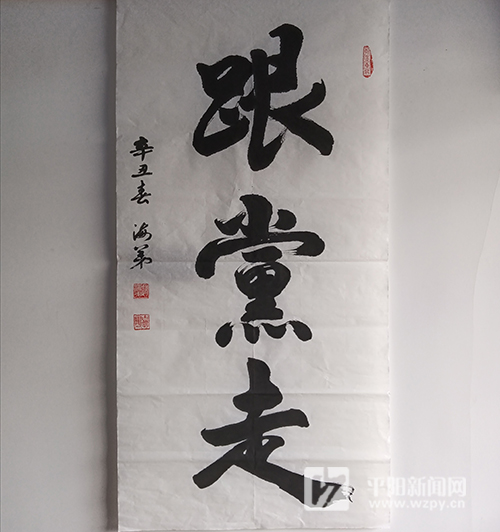 跟黨走
辛丑春 海第
平阳新闻网
www.wzpy.com